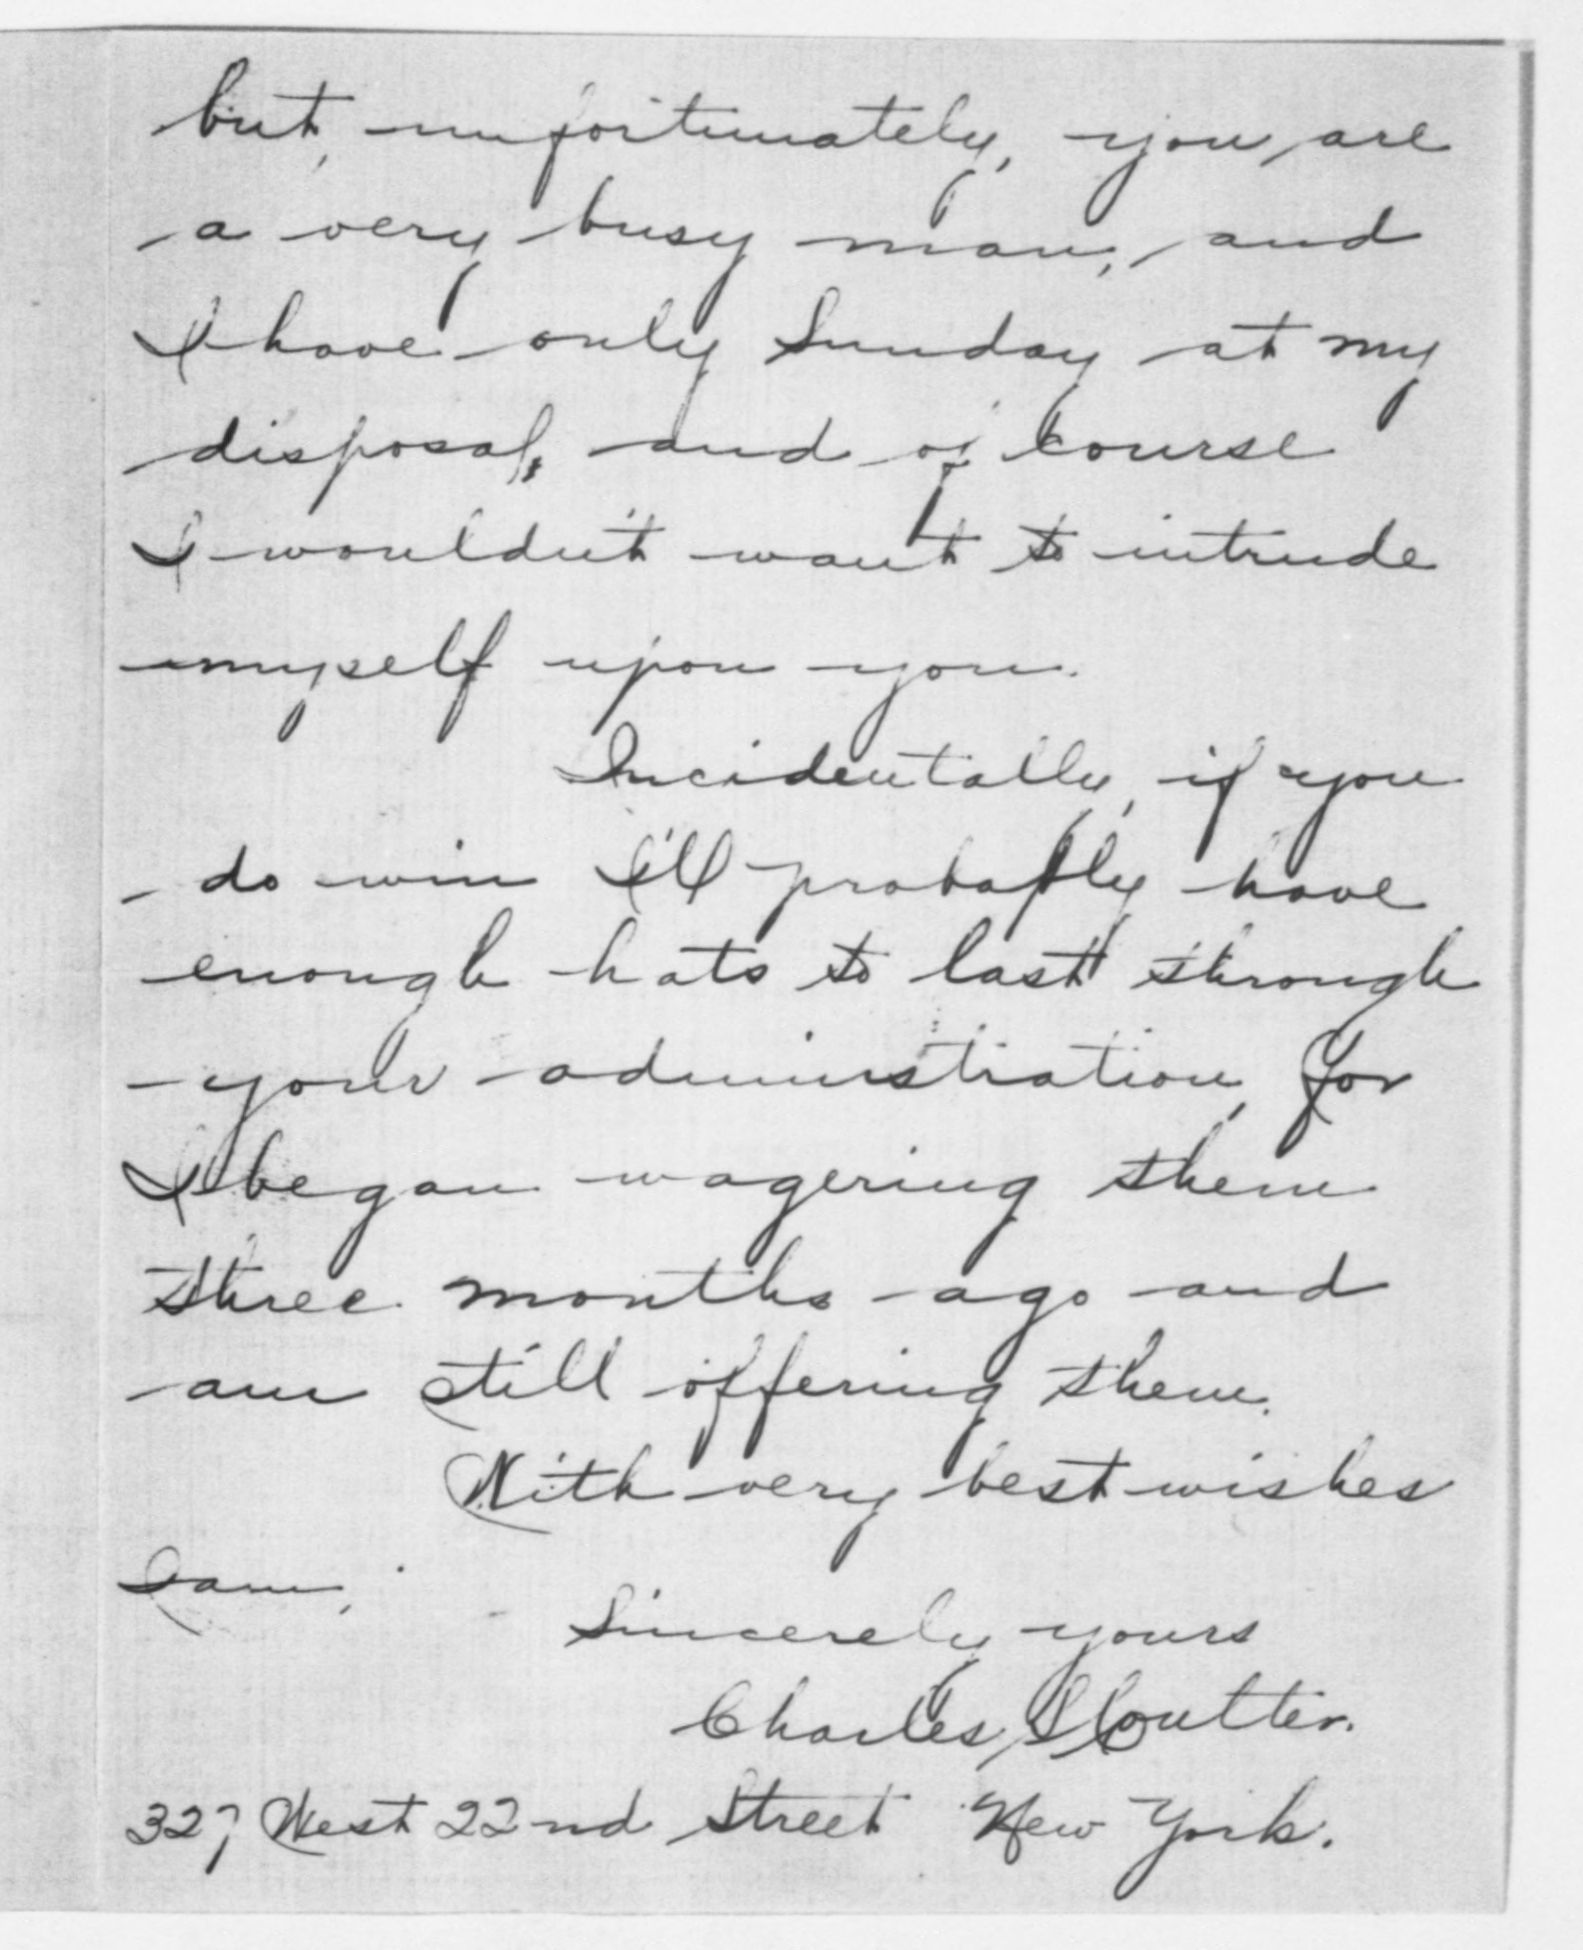 but, unfortunately, you are
a very busy man, and
I have only Sunday at my
disposal, and of course
I wouldn't want to intrude
myself upon you.
Incidentally, if you
do win I'll probably have
enough hats to last through
your administration, for
I began wagering them
three months ago and
am still offering them.
With very best wishes
I am,
Sincerely yours
Charles
327 West 22nd Street New York.